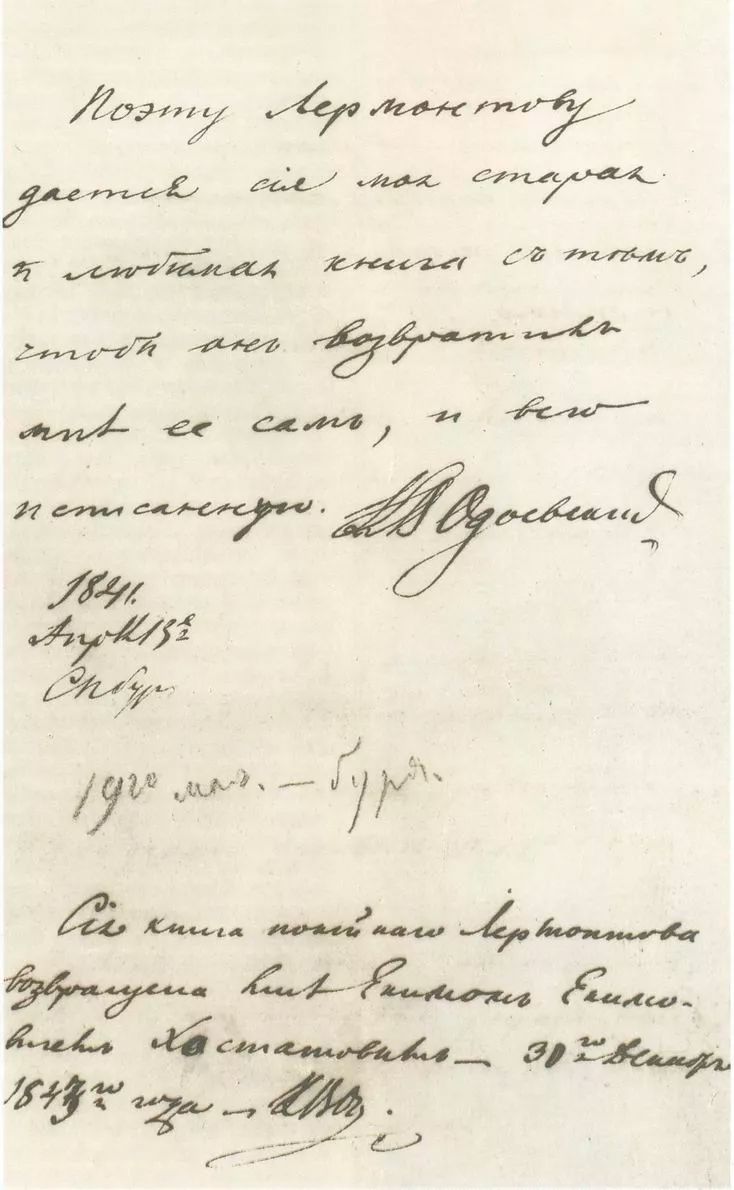 Поэту Лермонтову
дается сія моя старая
и любимая книга съ тѣмъ,
чтобы онъ возвратилъ
мнѣ ее самъ, и всю
исписанную. К В Одоевскій
1841.
Апрѣл 13 е
СПбург
19го мая. — буря.
Сія книга покойнаго Лермонтова
возвращена мнѣ Екимомъ Екимо-
вичемъ Хостатовымъ — 30го Декабр
1843го года — КВО.